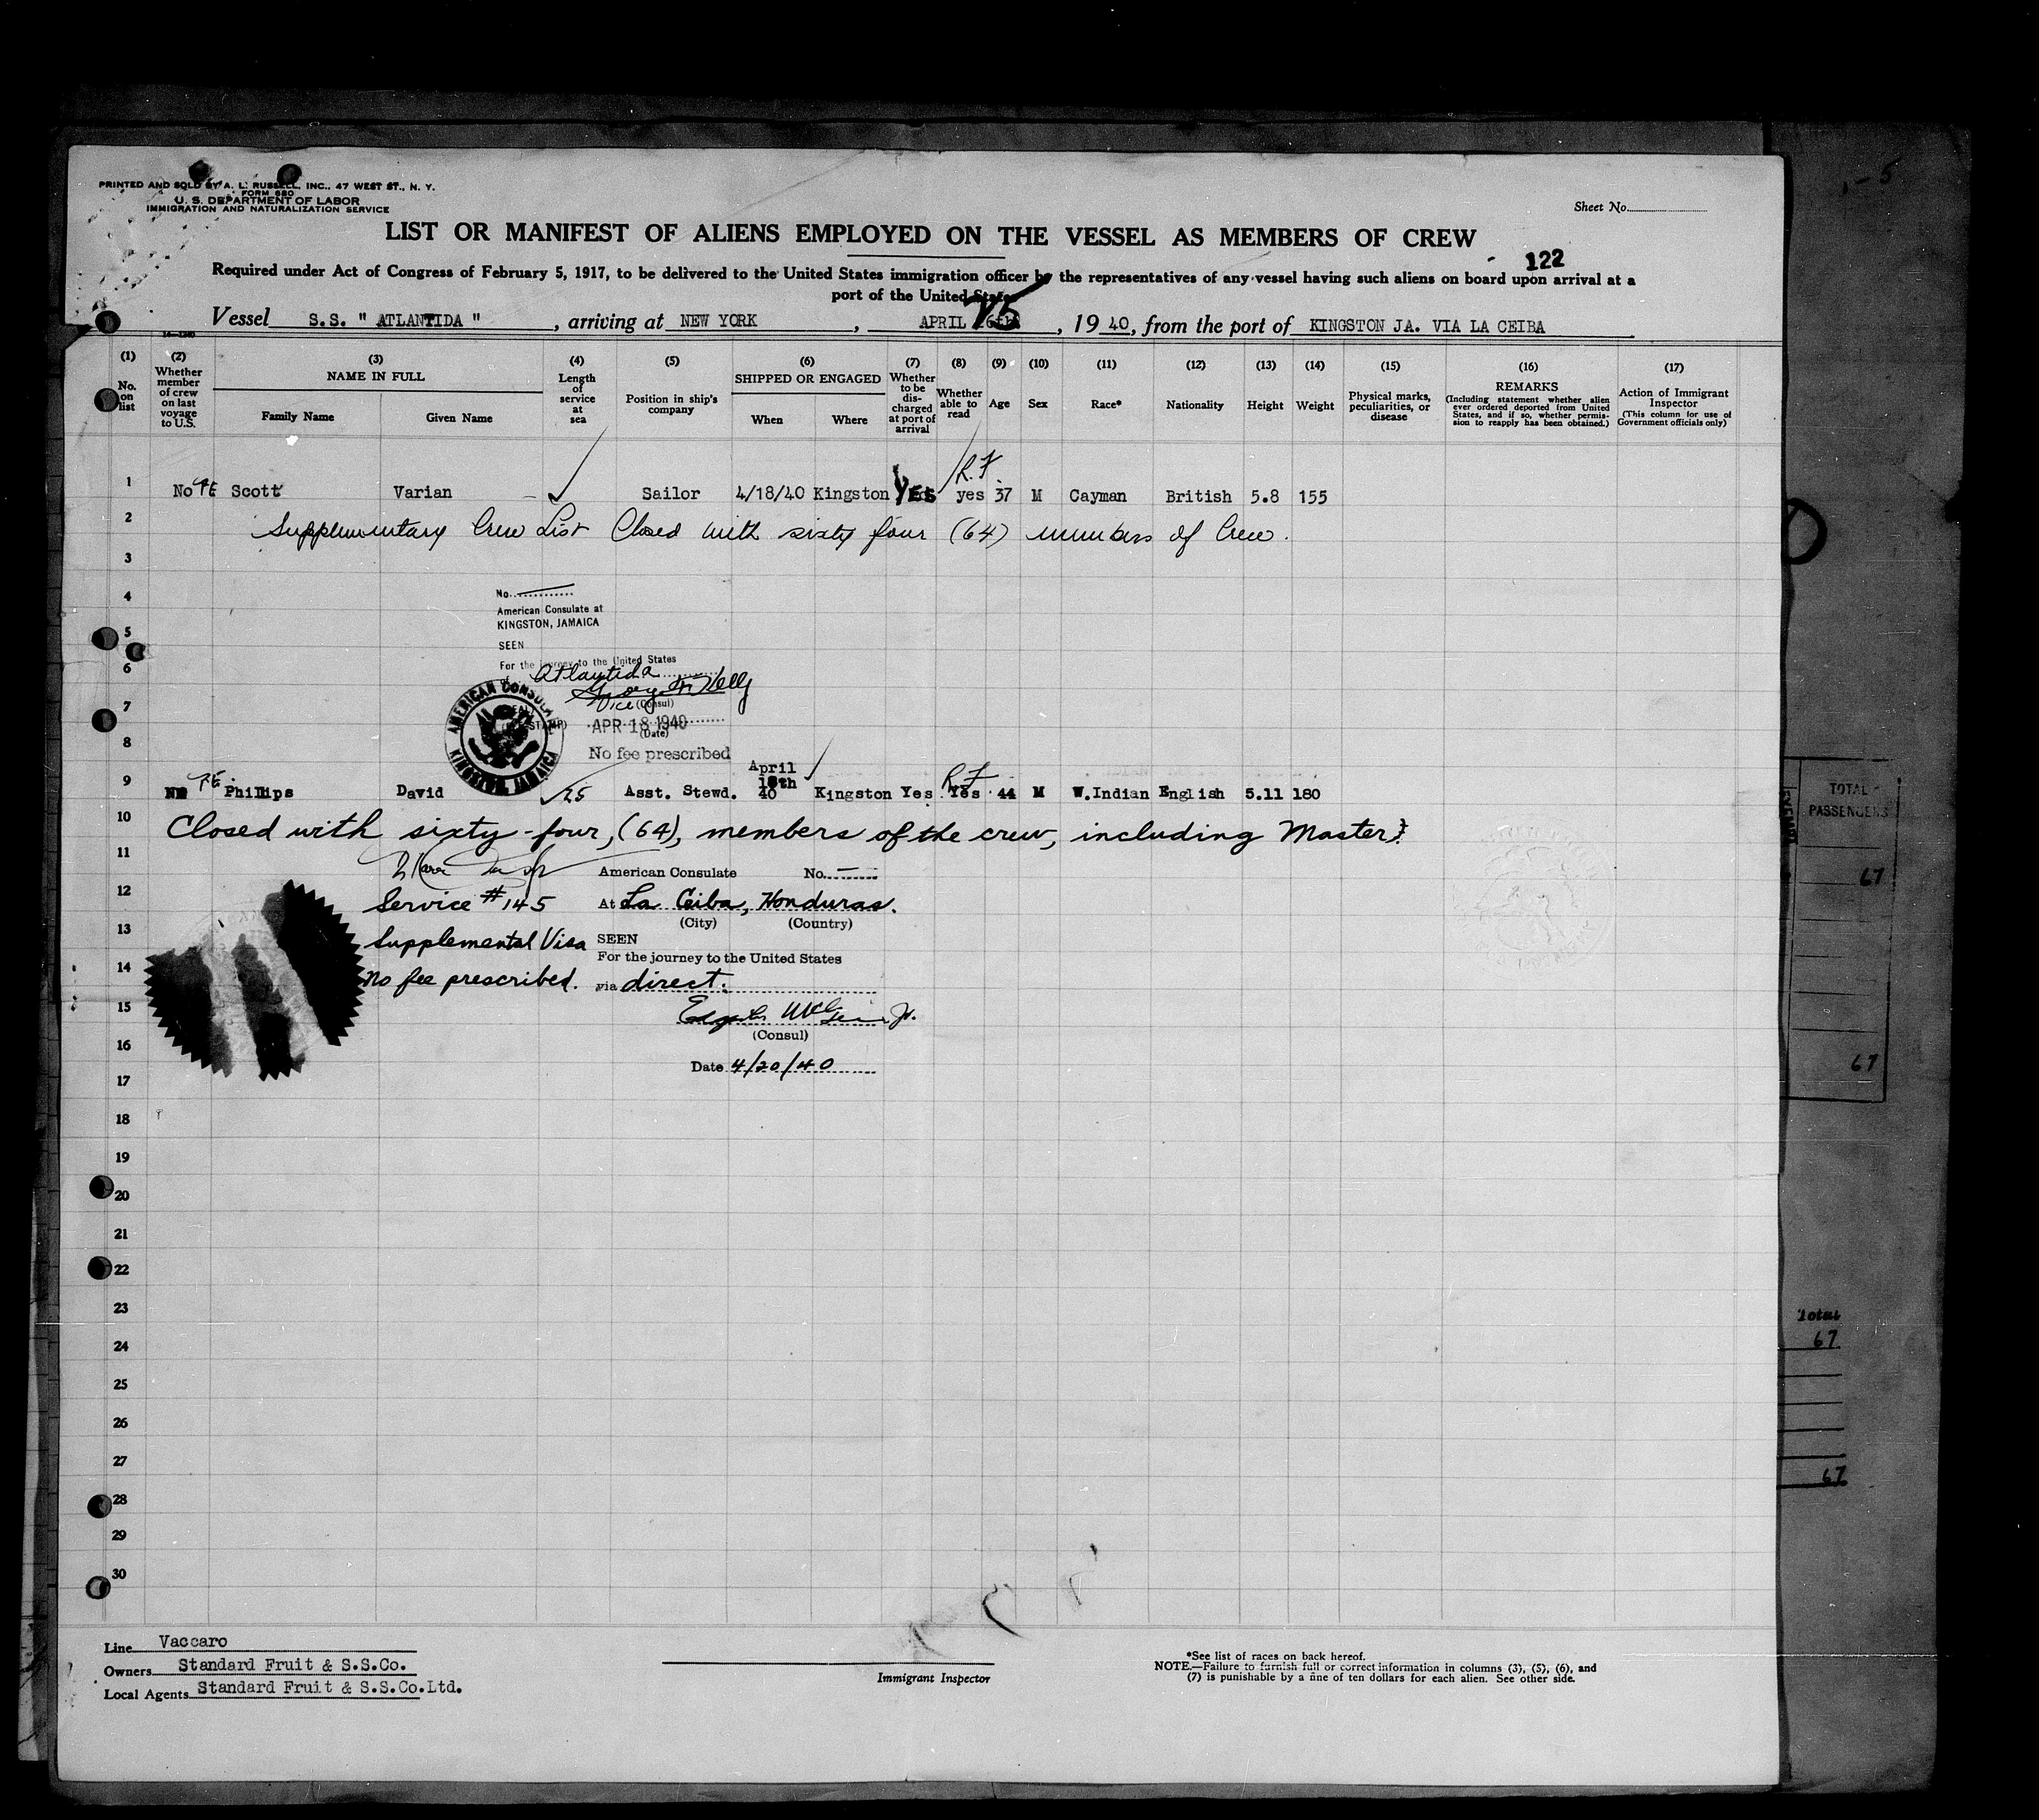 PRINTED AND SOLD BY A. L. RUSSELL, INC., 47 WEST ST., N. Y.
FORM 680
U. S. DEPARTMENT OF LABOR
IMMIGRATION AND NATURALIZATION SERVICE
Sheet No.
LIST OR MANIFEST OF ALIENS EMPLOYED ON THE VESSEL AS MEMBERS OF CREW
122
Required under Act of Congress of February 5, 1917, to be delivered to the United States immigration officer by the representatives of any vessel having such aliens on board upon arrival at a
port of the United States
Vessel S.S. " ATLANTIDA " , arriving at NEW YORK , APRIL 25 , 19 40, from the port of KINGSTON JA. VIA LA CEIBA
(1) No. on list
(2) Whether member of crew on last voyage to U.S.
(3) NAME IN FULL
Family Name Given Name
(4) Length of service at sea
(5) Position in ship's company
(6) SHIPPED OR ENGAGED
When Where
(7) Whether to be discharged at port of arrival
(8) Whether able to read
(9) Age
(10) Sex
(11) Race*
(12) Nationality
(13) Height
(14) Weight
(15) Physical marks, peculiarities, or disease
(16) REMARKS
(Including statement whether alien ever ordered deported from United States, and if so, whether permission to reapply has been obtained.)
(17) Action of Immigrant Inspector
(This column for use of Government officials only)
1 No PE Scott Varian – Sailor 4/18/40 Kingston YES yes 37 M Cayman British 5.8 155
2 Supplementary Crew List Closed with sixty four (64) members of Crew.
3
4
No.
American Consulate at
KINGSTON, JAMAICA
5
SEEN
6
For the journey to the United States
Atlantida
7
Vice (Consul)
AMERICAN CONSULATE
KINGSTON, JAMAICA
APR 18 1940
(Date)
8
No fee prescribed
9 No PE Phillips David 25 Asst. Stewd. April 18th 40 Kingston Yes Yes 44 M W.Indian English 5.11 180
10 Closed with sixty-four, (64), members of the crew, including Master.
11
American Consulate No.
12
Service #145
At La Ceiba, Honduras.
(City) (Country)
13
Supplemental Visa
SEEN
For the journey to the United States
14
No fee prescribed.
via direct.
15
Jr.
(Consul)
16
Date 4/20/40
17
18
19
20
21
22
23
24
25
26
27
28
29
30
Line Vaccaro
Owners Standard Fruit & S.S.Co.
Local Agents Standard Fruit & S.S.Co.Ltd.
Immigrant Inspector
*See list of races on back hereof.
NOTE.—Failure to furnish full or correct information in columns (3), (5), (6), and
(7) is punishable by a fine of ten dollars for each alien. See other side.
TOTAL
PASSENGERS
67
67
Total
67
67